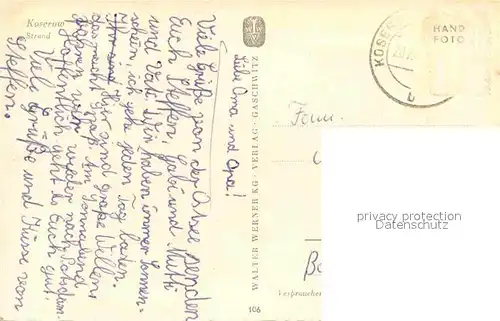 Koserow
Strand
Liebe Oma und Opa!
Viele Grüße von der Ostsee senden
Euch Steffen, Gabi und Mutti
und Vati. Wir haben immer Sonnen-
schein, ich gehe jeden Tag baden.
Hier sind große Wellen,
das macht Spaß. Am Sonnabend
wir wieder nach Potsdam.
Hoffentlich geht es Euch gut.
Viele Grüße und Küsse von
Steffen.
WALTER WERNER KG · VERLAG · GASCHWITZ
106
KOSE
b
HAND
FOTO
Fam.
privacy protection
Datenschutz